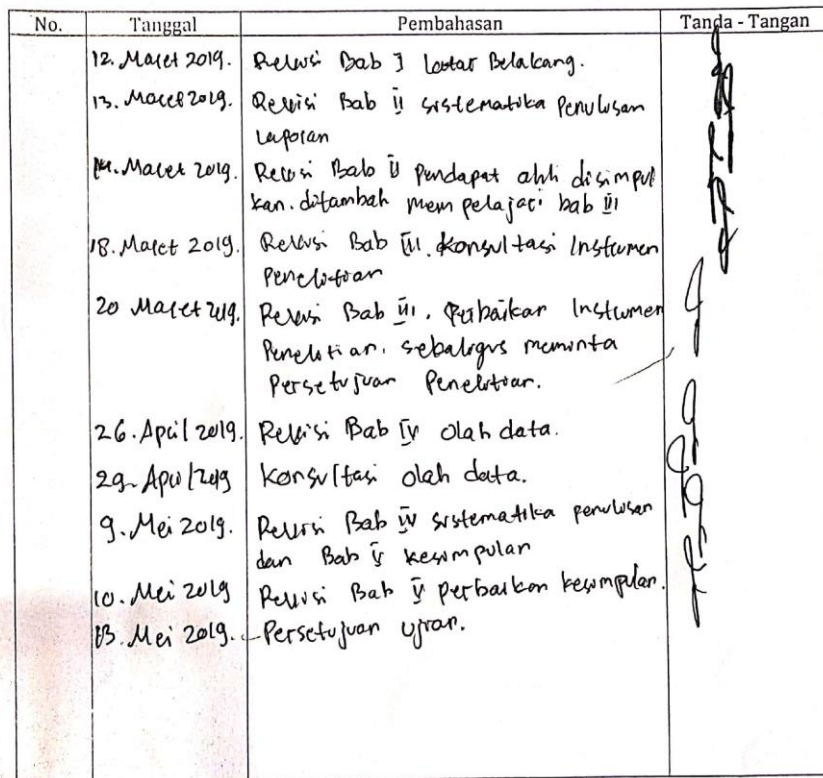 No. Tanggal Pembahasan Tanda - Tangan
12. Maret 2019. Revisi Bab I Latar Belakang.
13. Maret 2019. Revisi Bab II sistematika Penulisan
laporan
14. Maret 2019. Revisi Bab II Pendapat ahli disimpul
kan. ditambah mempelajari bab III
18. Maret 2019. Revisi Bab III. Konsultasi Instrumen
Penelitian
20 Maret 2019. Revisi Bab III. Perbaikan Instrumen
Penelitian. sebaligus meminta
Persetujuan Penelitian.
26. April 2019. Revisi Bab IV olah data.
29. April 2019 Konsultasi olah data.
9. Mei 2019. Revisi Bab IV sistematika penulisan
dan Bab V kesimpulan
10. Mei 2019 Revisi Bab V perbaikan kesimpulan.
13. Mei 2019. Persetujuan ujian.